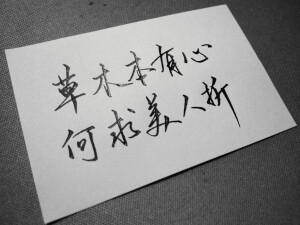 草木本有心
何求美人折